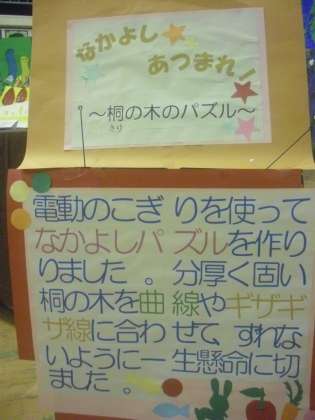 なかよし
あつまれ！
～桐の木のパズル～
きり
電動のこぎりを使って
なかよしパズルを作り
りました。分厚く固い
桐の木を曲線やギザギ
ザ線に合わせて、ずれな
いように一生懸命に切
ました。